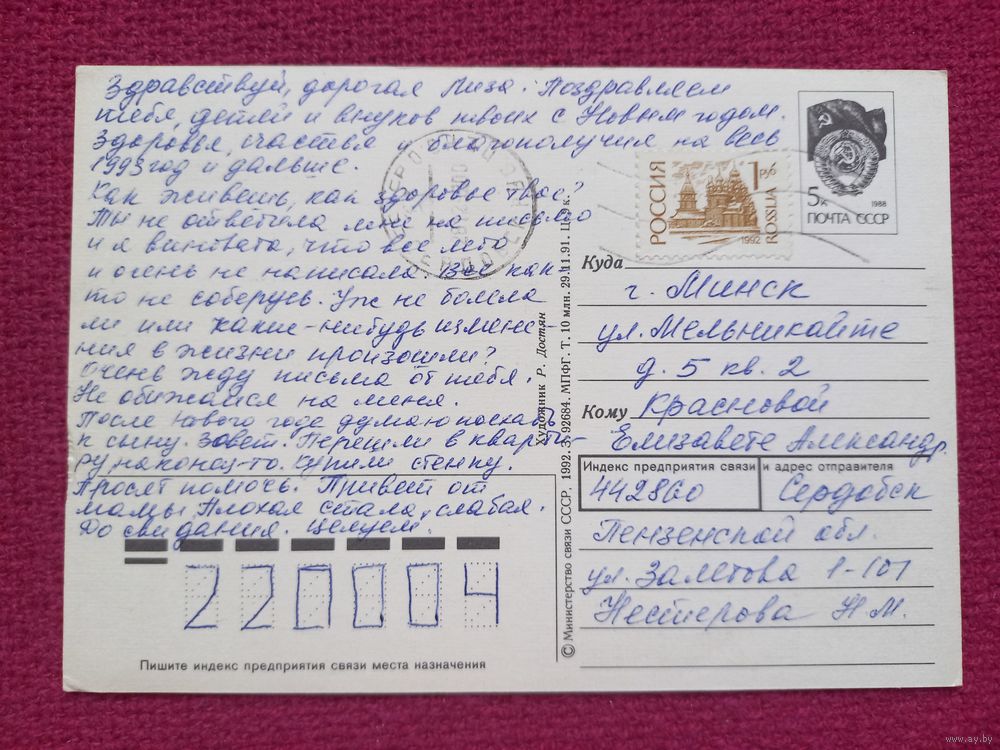 Здравствуй, дорогая Лиза! Поздравляем
тебя, детей и внуков твоих с Новым годом.
Здоровья, счастья и благополучия на весь
1993 год и дальше.
Как живешь, как здоровье твое?
Ты не ответила мне на письмо
и я виновата, что все лето
и осень не написала. Все как-
то не соберусь. Уж не болела
ли или какие-нибудь измене-
ния в жизни произошли?
Очень жду письма от тебя.
Не обижайся на меня.
После Нового года думаю поехать
к сыну. Зовет. Перешли в кварти-
ру наконец-то. Купили стенку.
Просят помочь. Привет от
мамы. Плохая стала, слабая.
До свидания. Целуем.
220004
Пишите индекс предприятия связи места назначения
© Министерство связи СССР, 1992. З. 92684. МПФГ. Т. 10 млн. 29.11.91. Ц. 9 к.
Художник Р. Достян
РОССИЯ
1 руб
1992
ROSSIJA
5к
1988
ПОЧТА СССР
Куда
г. Минск
ул. Мельникайте
д. 5 кв. 2
Кому Красновой
Елизавете Александр.
Индекс предприятия связи и адрес отправителя
442860 Сердобск
Пензенской обл.
ул. Заметова 1-101
Нестерова Н.М.
www.ay.by